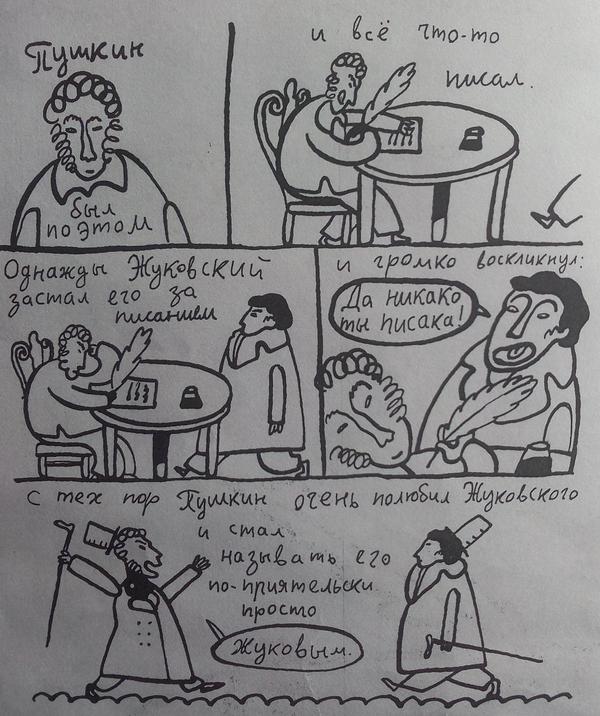 Пушкин
был
поэтом
и всё что-то
писал.
Однажды Жуковский
застал его за
писанием
и громко воскликнул:
Да никако
ты писака!
с тех пор Пушкин очень полюбил Жуковского
и стал
называть его
по-приятельски
просто
Жуковым.